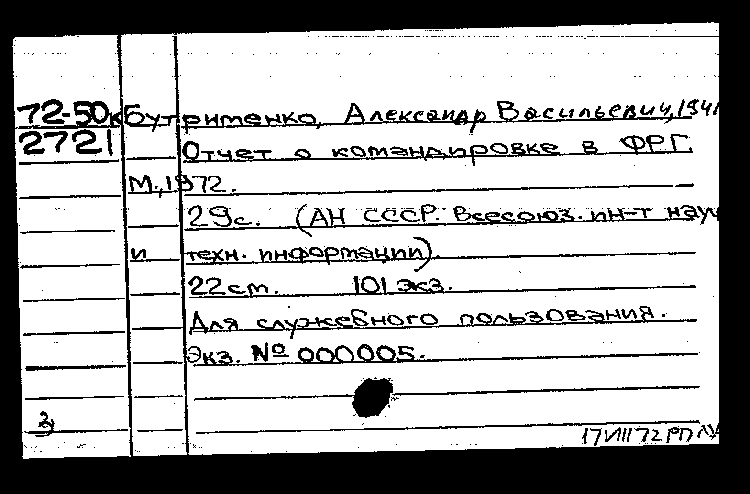 72-50к Бутрименко, Александр Васильевич, 1941
2721 Отчет о командировке в ФРГ.
М., 1972.
29с. (АН СССР. Всесоюз. ин-т науч
и техн. информации).
22 см. 101 экз.
Для служебного пользования.
Экз. № 000005.
17 VIII 72 РП